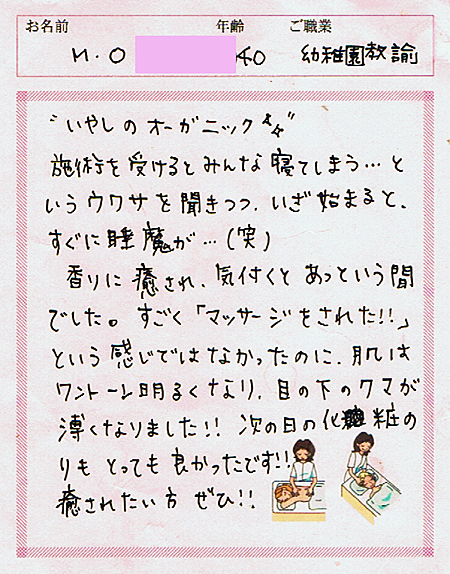 お名前 年齢 ご職業
M.O 40 幼稚園教諭
"いやしのオーガニック"
施術を受けるとみんな寝てしまう…と
いうウワサを聞きつつ、いざ始まると、
すぐに睡魔が…(笑)
香りに癒され、気付くとあっという間
でした。すごく「マッサージをされた!!」
という感じではなかったのに、肌は
ワントーン明るくなり、目の下のクマが
薄くなりました!! 次の日の化粧の
りもとっても良かったです!!
癒されたい方ぜひ!!